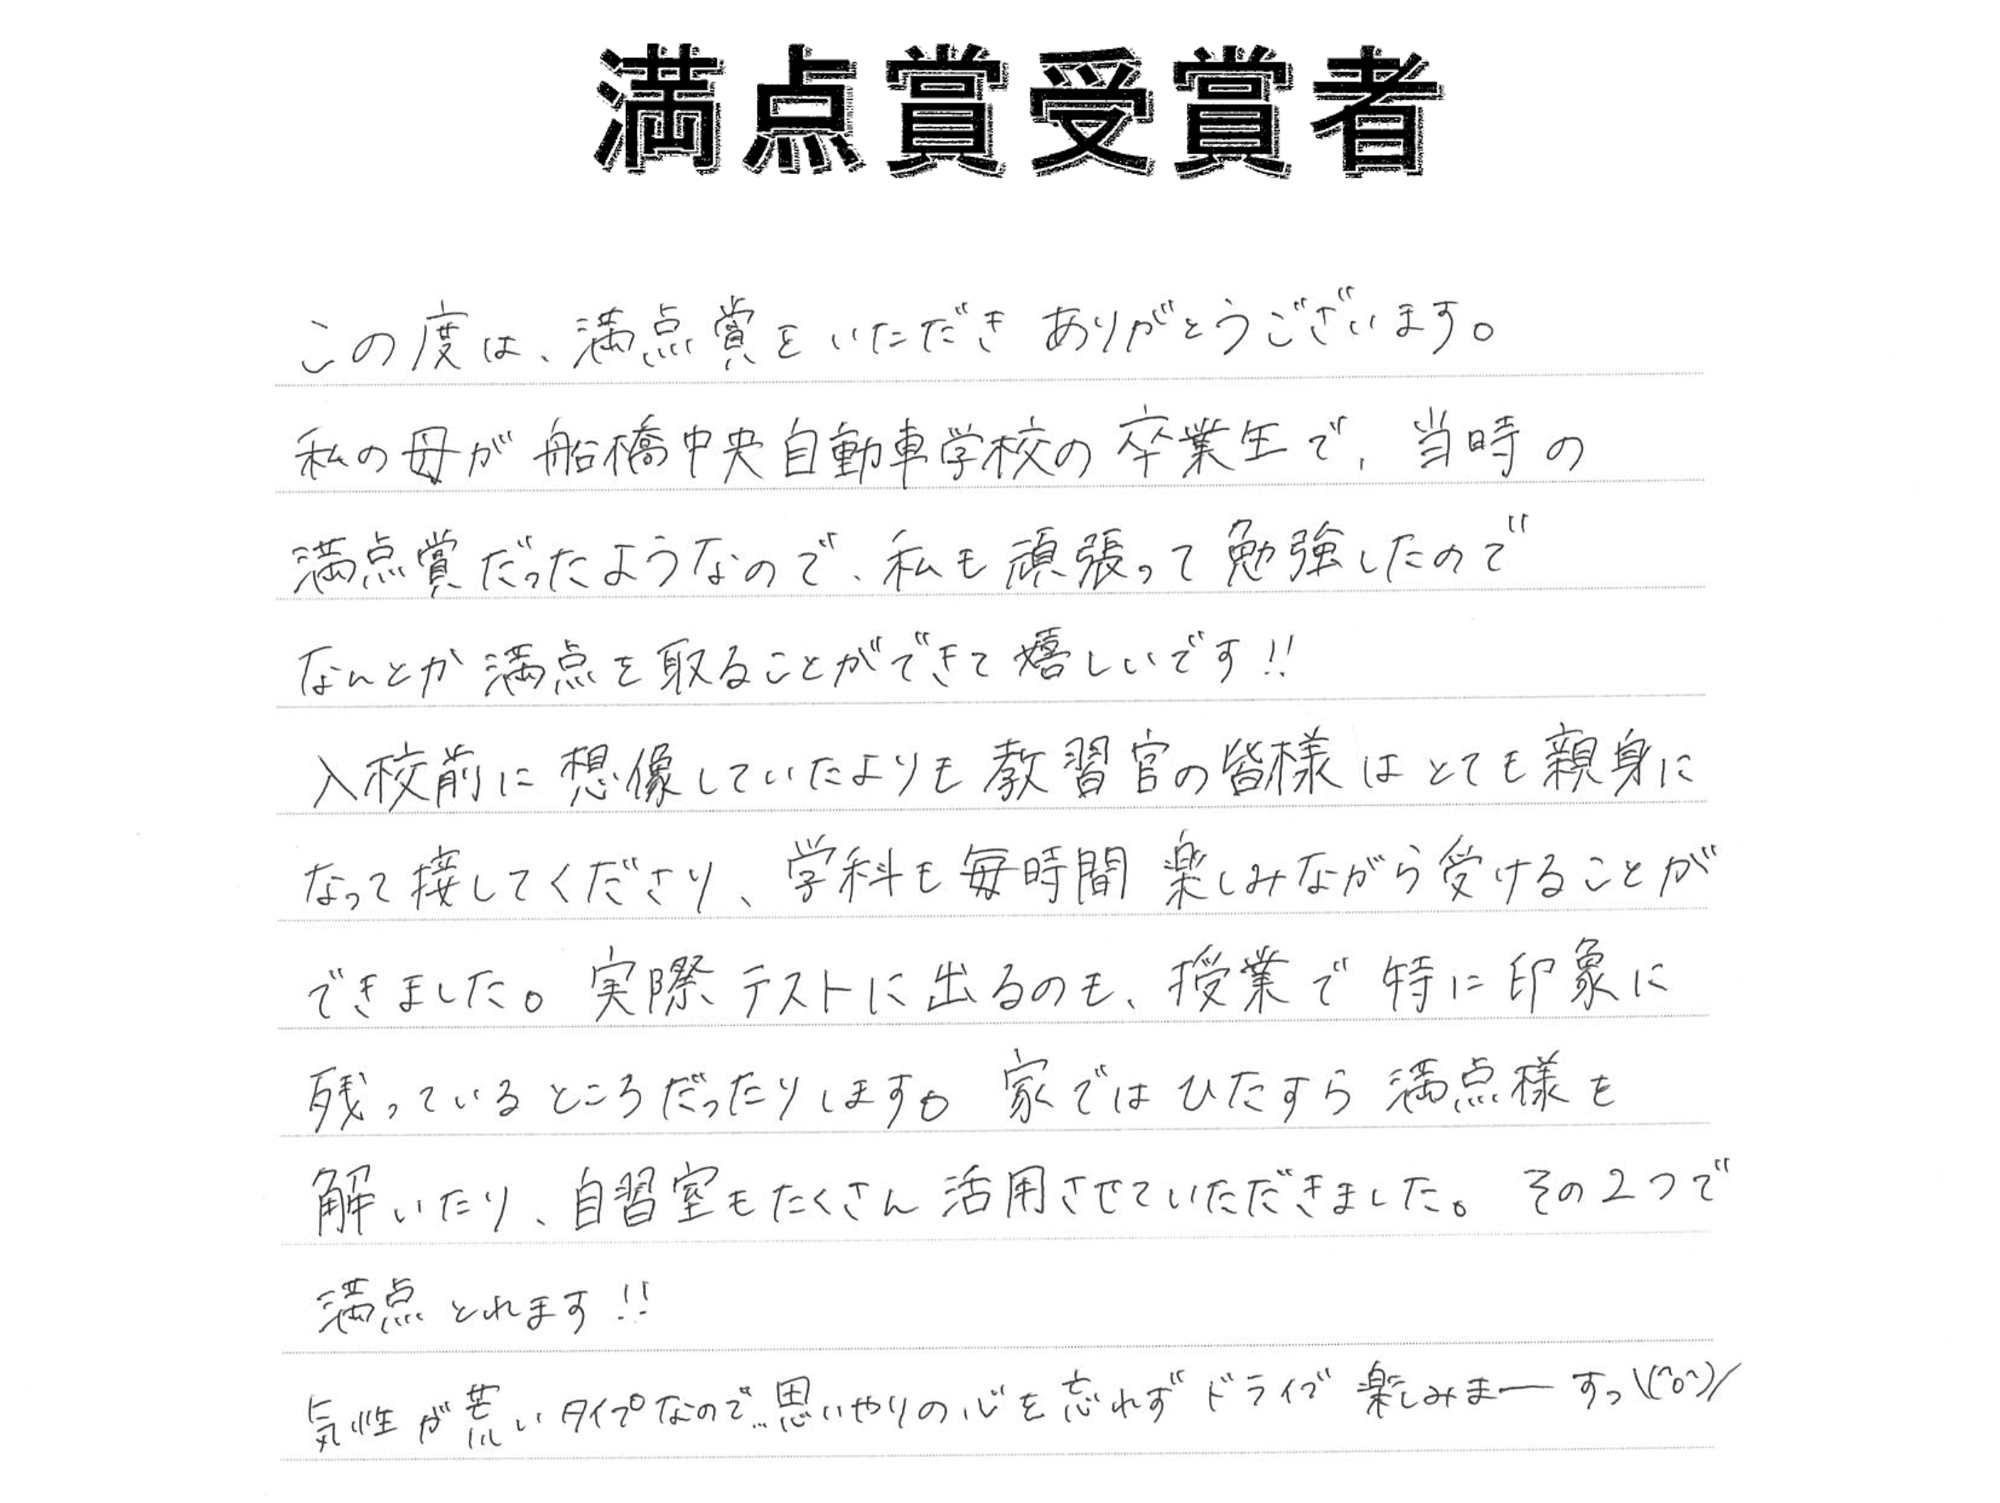 満点賞受賞者
この度は、満点賞をいただき ありがとうございます。
私の母が 船橋中央自動車学校の 卒業生で、当時の
満点賞だったようなので、私も頑張って勉強したので
なんとか満点を取ることができて嬉しいです!!
入校前に想像していたよりも教習官の皆様はとても親身に
なって接してくださり、学科も毎時間 楽しみながら受けることが
できました。実際テストに出るのも、授業で特に印象に
残っているところだったりします。家ではひたすら満点様を
解いたり、自習室もたくさん活用させていただきました。その2つで
満点とれます!!
気性が荒いタイプなので…思いやりの心を忘れずドライブ楽しみまーすっ\(^o^)/